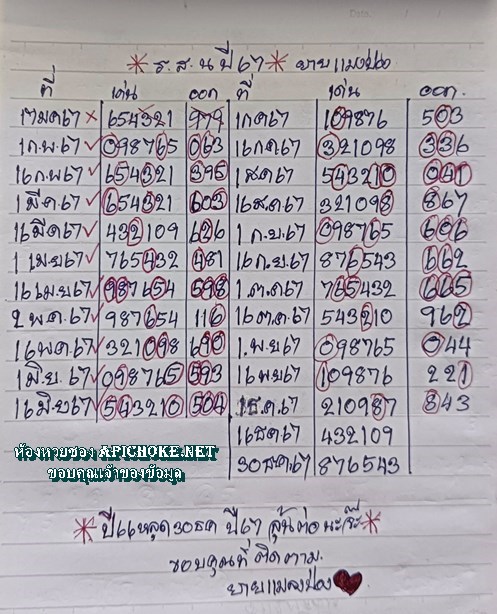 * ร.ส.น ปี ๖๗ * ยายแมงปอง
ที่ เด่น ออก ที่ เด่น ออก.
17 มค 67 × 654321 979 1 กค 67 109876 503
1 ก.พ. 67 ✓ 098765 063 16 กค 67 321098 336
16 ก.พ 67 ✓ 654321 395 1 สค 67 543210 041
1 มี.ค. 67 ✓ 654321 603 16 ส.ค 67 321098 867
16 มีค 67 ✓ 432109 626 1 ก.ย 67 098765 606
1 เม.ย 67 ✓ 765432 481 16 ก.ย. 67 876543 662
16 เม.ย 67 ✓ 987654 598 1 ต.ค 67 765432 665
2 พ.ค. 67 ✓ 987654 116 16 ต.ค. 67 543210 962
16 พค 67 ✓ 321098 690 1 พ.ย 67 098765 044
1 มิ.ย. 67 ✓ 098765 593 16 พย 67 109876 221
16 มิย 67 ✓ 543210 504 1 ธ.ค. 67 210987 843
16 ธค 67 432109
30 ธค 67 876543
ห้องหวยซอง APICHOKE.NET
ขอบคุณเจ้าของข้อมูล
* ปี 66 หลุด 30 ธค ปี 67 ลุ้นต่อนะจ๊ะ *
ขอบคุณที่ติดตาม.
ยายแมงปอง ♥